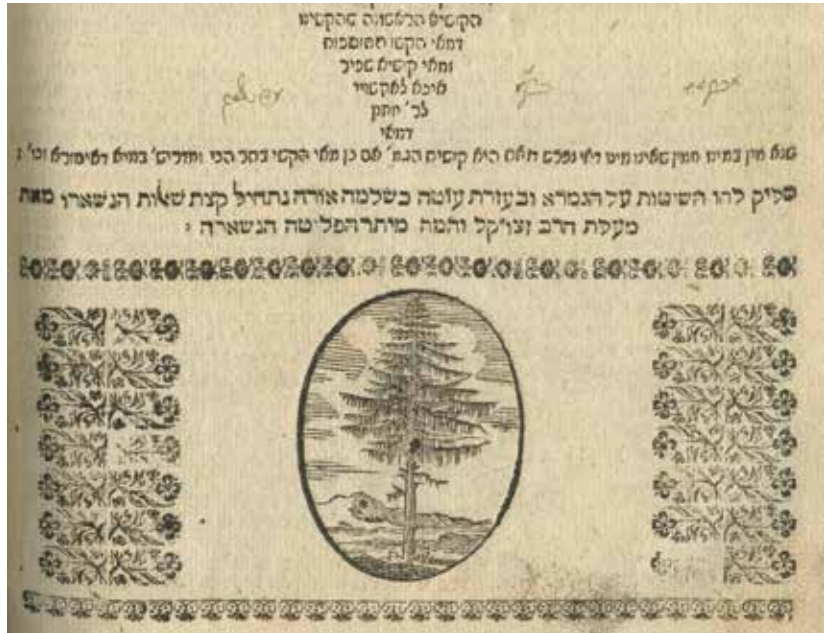 הקושיא הראשונה שהקשינו
דמאי הקשו התוספות
ומאי קושיא שפיר
איכא לאקשויי
לר' יוחנן
דמאי
שנא מין במינו חמין שאינו מינו דאי נפרש דאם היא קושית הגמ' אם כן מאי הקשי בתר הכי וחדיש' במיא דאימורא וכו' :
סליק להו השיטות על הגמרא ובעזרת עוטה כשלמה אורה נתחיל קצת שאלות הנשארו מאת
מעלת הרב זצוקל והמה מיתר הפליטה הנשארה :